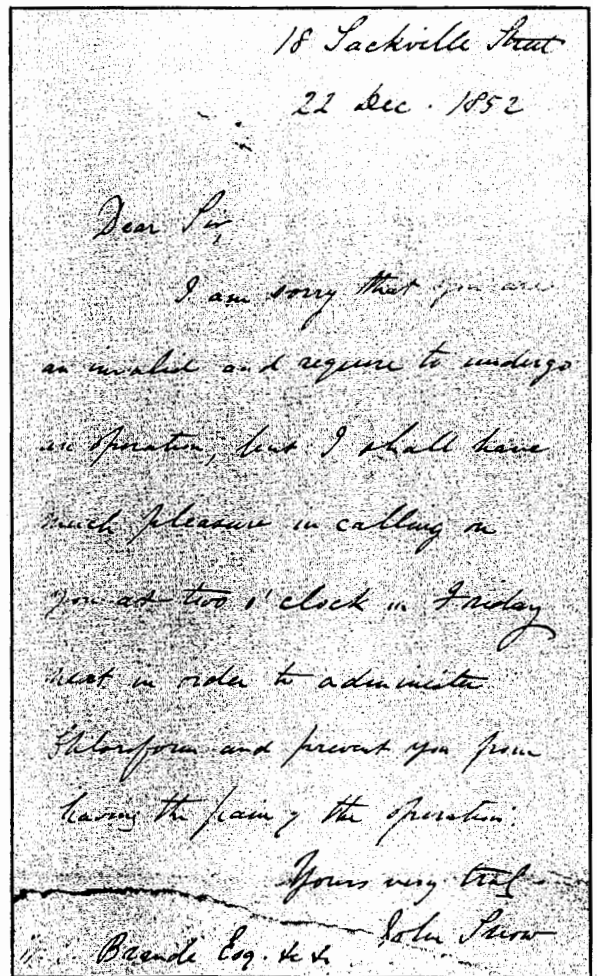 18 Sackville Street
22 Dec. 1852
Dear Sir,
I am sorry that you are
an invalid and require to undergo
an operation, but I shall have
much pleasure in calling on
you at two o'clock on Friday
next in order to administer
Chloroform and prevent you from
having the pain of the operation.
Yours very truly
John Snow
Brande Esq. &c &c